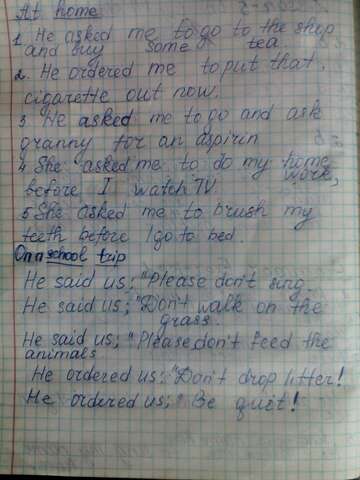 At home
1. He asked me to go to the shop
and buy some tea
2. He ordered me to put that
cigarette out now.
3 He asked me to go and ask
granny for an aspirin
4 She asked me to do my home
work,
before I watch TV
5 She asked me to brush my
teeth before I go to bed.
On a school trip
He said us; "Please don't sing.
He said us; "Don't walk on the
grass.
He said us; "Please don't feed the
animals
He ordered us: "Don't drop litter!
He ordered us; "Be quit!